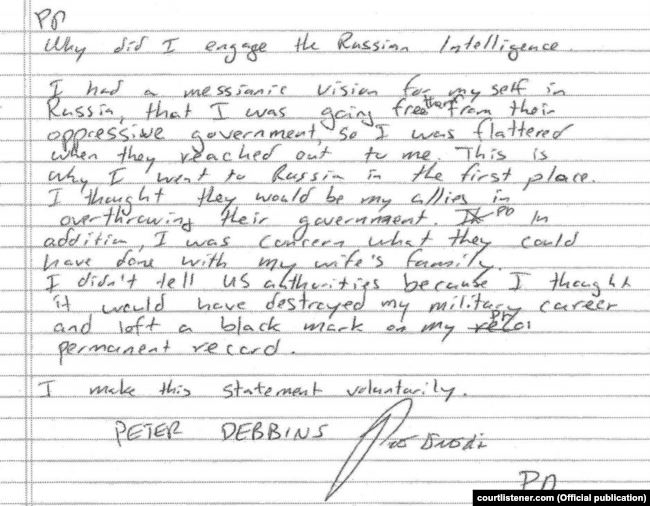 PD
Why did I engage the Russian Intelligence.
I had a messianic vision for myself in
Russia, that I was going free them from their
oppressive government, so I was flattered
when they reached out to me. This is
why I went to Russia in the first place.
I thought they would be my allies in
overthrowing their government. It PD In
addition, I was concern what they could
have done with my wife's family.
I didn't tell US authorities because I thought
it would have destroyed my military career
and left a black mark on my PD
permanent record.
I make this statement voluntarily.
PETER DEBBINS
PD
courtlistener.com (Official publication)